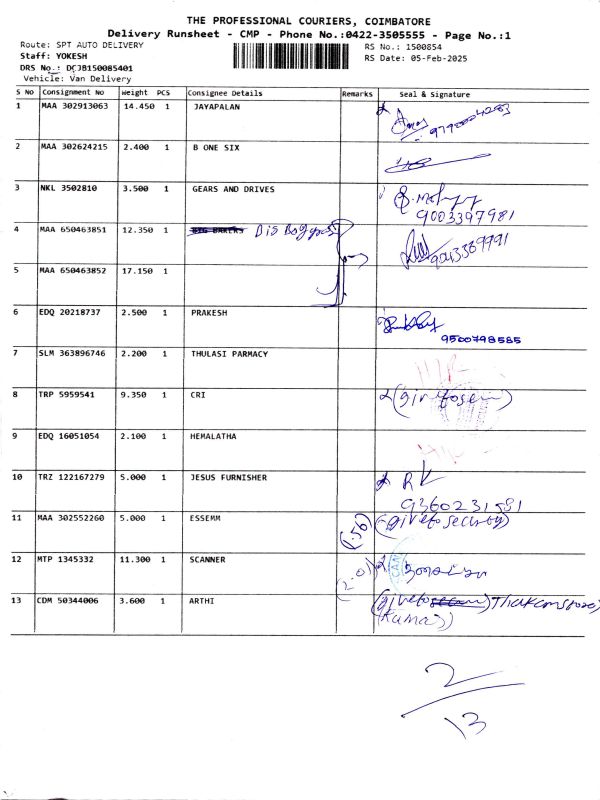 THE PROFESSIONAL COURIERS, COIMBATORE
Delivery Runsheet - CMP - Phone No.:0422-3505555 - Page No.:1
Route: SPT AUTO DELIVERY RS No.: 1500854
Staff: YOKESH RS Date: 05-Feb-2025
DRS No.: DCJB150085401
Vehicle: Van Delivery
S No Consignment No Weight PCS Consignee Details Remarks Seal & Signature
1 MAA 302913063 14.450 1 JAYAPALAN
2 MAA 302624215 2.400 1 B ONE SIX
3 NKL 3502810 3.500 1 GEARS AND DRIVES
9003397981
4 MAA 650463851 12.350 1 BIG BAKERS
5 MAA 650463852 17.150 1
6 EDQ 20218737 2.500 1 PRAKESH
9500798585
7 SLM 363896746 2.200 1 THULASI PARMACY
8 TRP 5959541 9.350 1 CRI
9 EDQ 16051054 2.100 1 HEMALATHA
10 TRZ 122167279 5.000 1 JESUS FURNISHER
9360231581
11 MAA 302552260 5.000 1 ESSEMM (1.56) (giveto security)
12 MTP 1345332 11.300 1 SCANNER (2.01)
13 CDM 50344006 3.600 1 ARTHI
(Kumar)
2
13